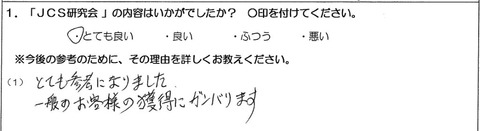 1. 「JCS研究会」の内容はいかがでしたか? ○印を付けてください。
・とても良い ・良い ・ふつう ・悪い
※今後の参考のために、その理由を詳しくお教えください。
(1) とても参考になりました
一般のお客様の獲得にガンバリます